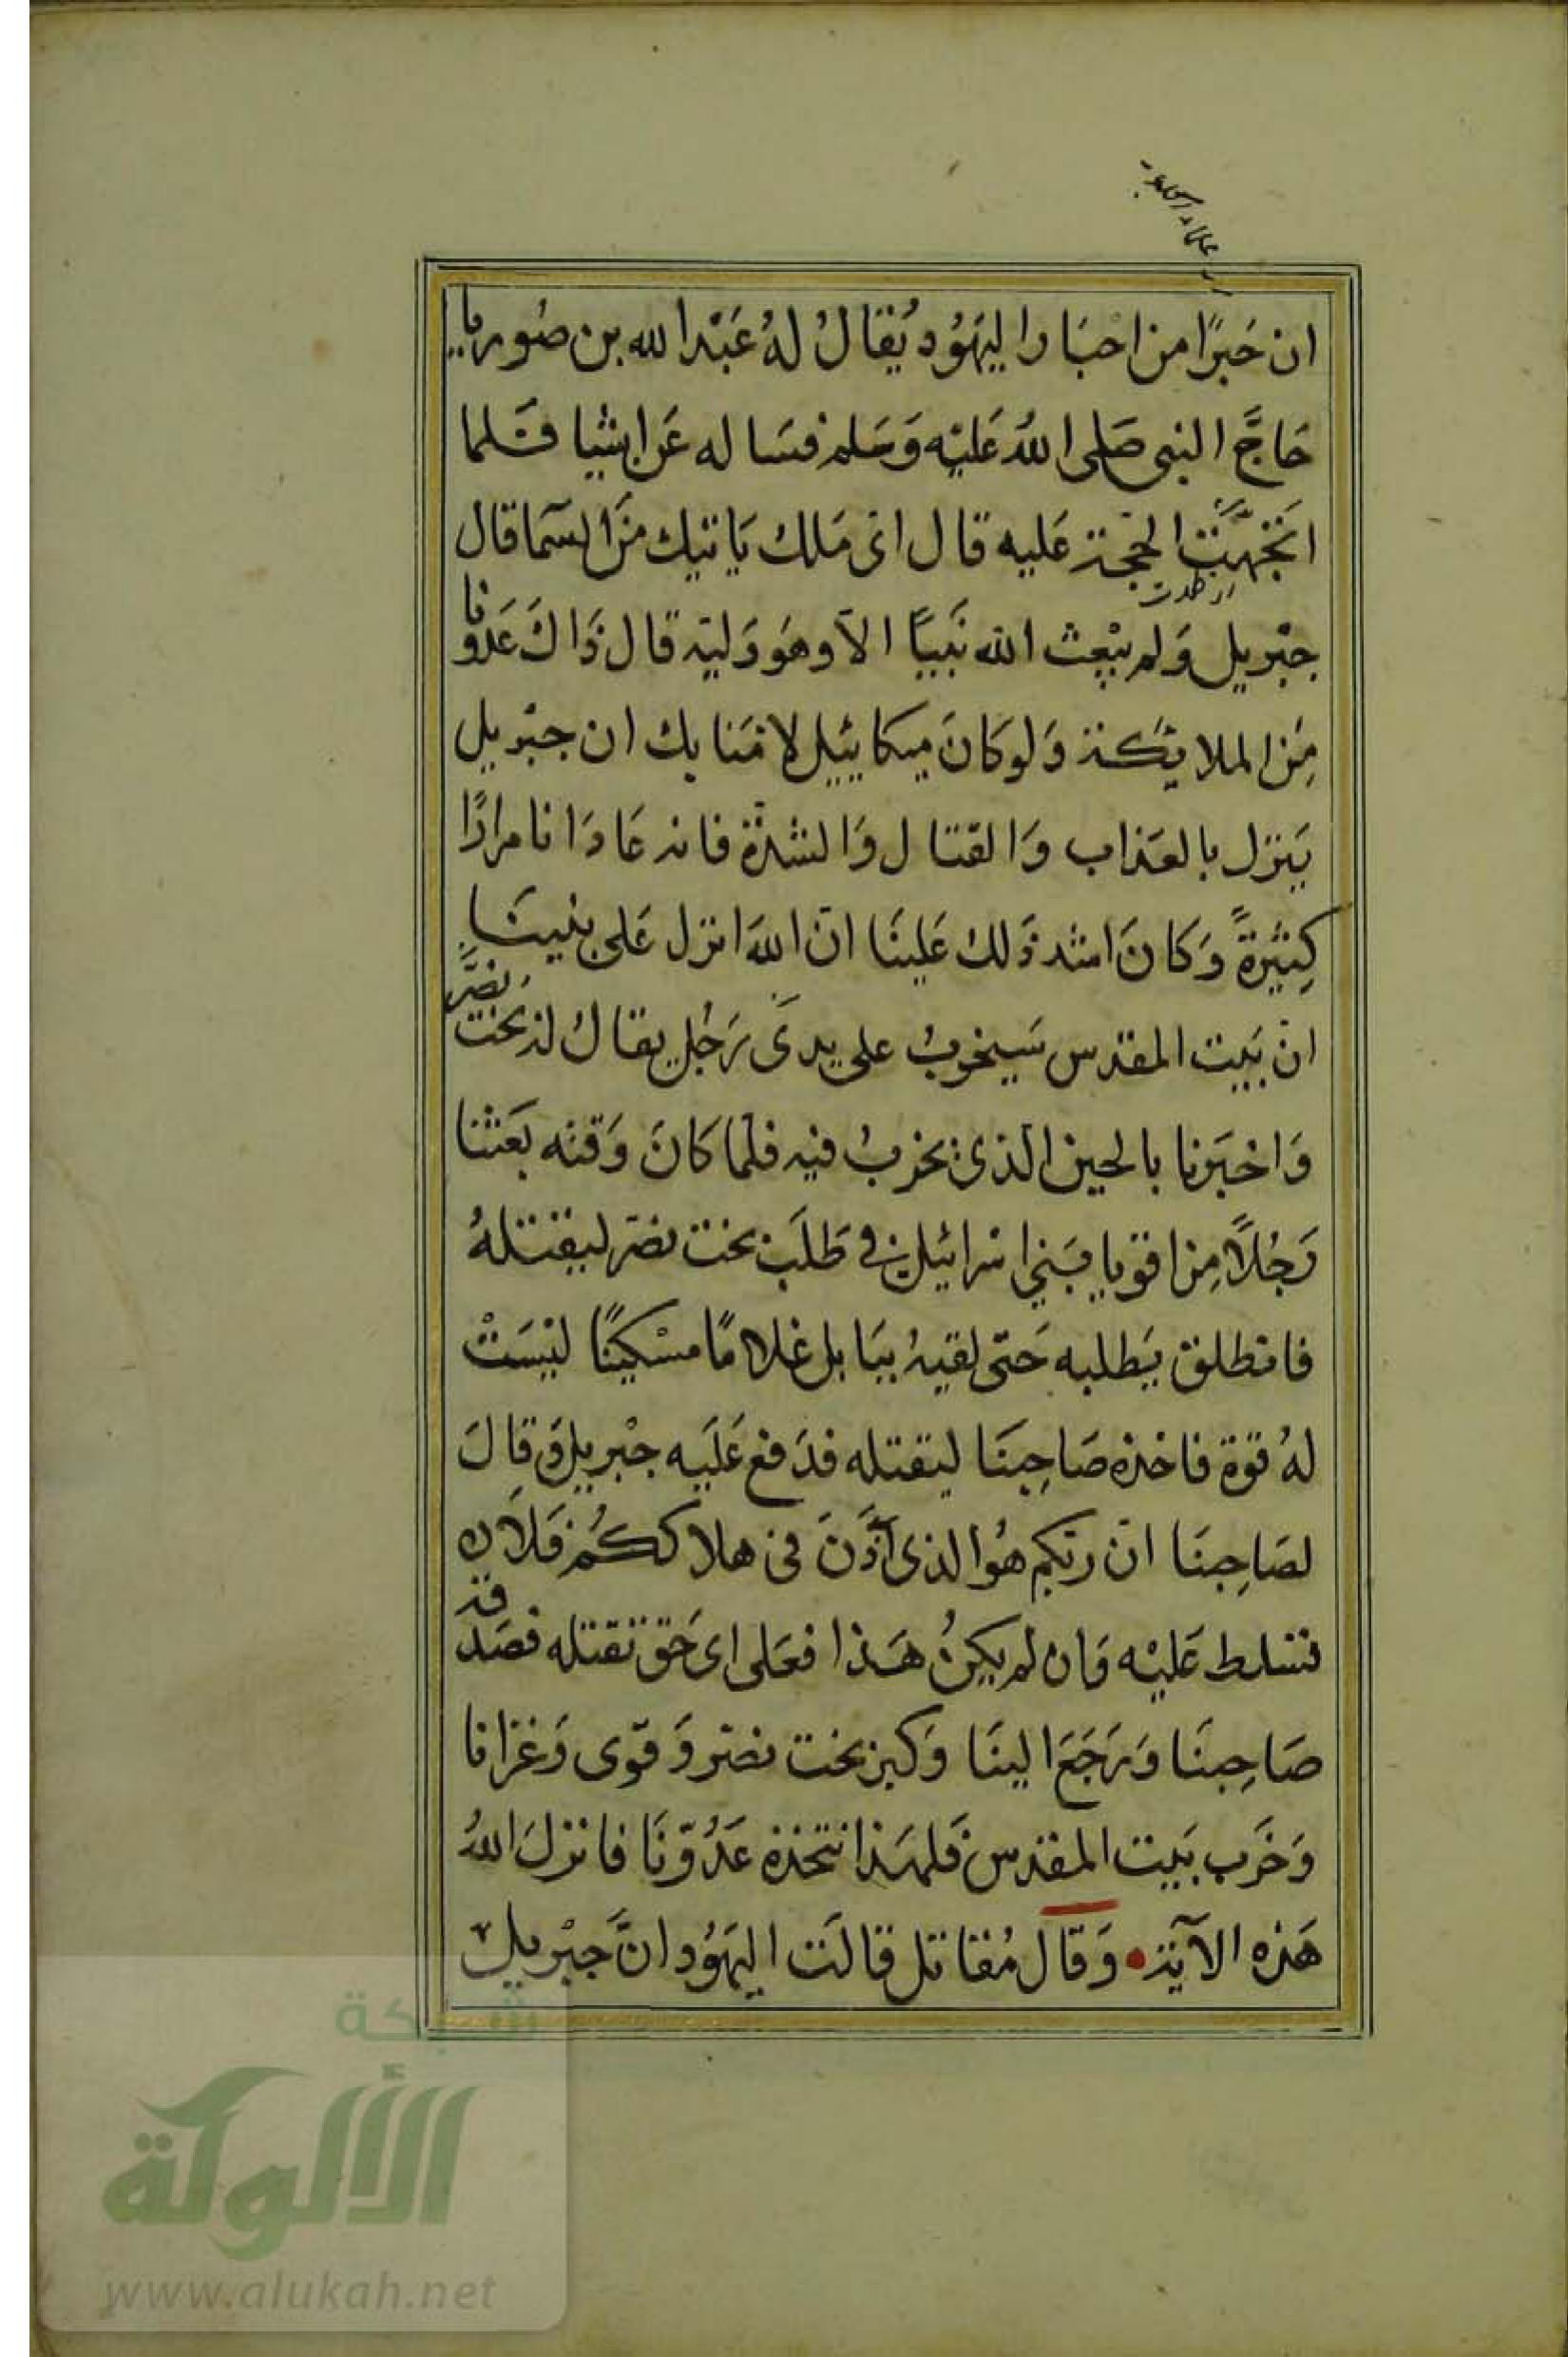 ان حَبرًا من احبَار اليهَوُد يُقالُ لهُ عَبْد الله بن صُوريا
حَاجَّ النبى صَلى اللهُ عَليْه وَسَلم فسَاله عَن اشيا فَلما
اتجهَت الحجّة عَليه قال اى مَلك يَاتيك منَ السّمَا قال
جبْريل وَلم يبْعث الله نَبيًا الا وهوَ وَليّه قال ذَاكَ عَدونا
مِنَ الملايكة وَلو كانَ ميكاييل لامَنا بك ان جبْريل
يَنزل بالعَذاب وَالقتال وَالشدّة فانه عَادَانا مرارًا
كِثيْرةً وَكانَ اشد ذَلك عَلينَا انّ اللهَ انزل عَلى نبينَا
انّ بَيت المقدس سَيخربُ على يدىَ رَجُل يقالُ له بخت نصَّر
وَاخبَرنا بالحين الّذى يخربُ فيه فلما كانَ وَقته بَعَثنا
رَجُلاً مِن اقويا بَني اسْرائيل فى طَلَب بخت نصّر ليقتلهُ
فانطلق يَطلبه حَتّى لقيهُ ببَابل غلامًا مسْكينًا ليْسَتْ
لهُ قوّة فاخذه صَاحِبنَا ليقتله فدَفع عَلَيه جبْريل وَقالَ
لصَاحِبنَا انّ ربّكم هُوَ الذى اَذنَ فى هلاككُم فَلا ن
تسَلط عَليْه وَان لم يكنُ هَذا فعَلى اى حَق تقتله فصَدقه
صَاحِبنَا وَرَجَعَ الينَا وَكبر بخت نصّر وَقوّى وَغزانا
وَخرَب بَيت المقدس فَلهَذا نتّخذه عَدُوّنَا فانزلَ اللهُ
هَذه الآية وَقال مُقاتل قالَت اليهَوُد انَّ جبْريل
ار ظهرت
شبكة
الألوكة
www.alukah.net